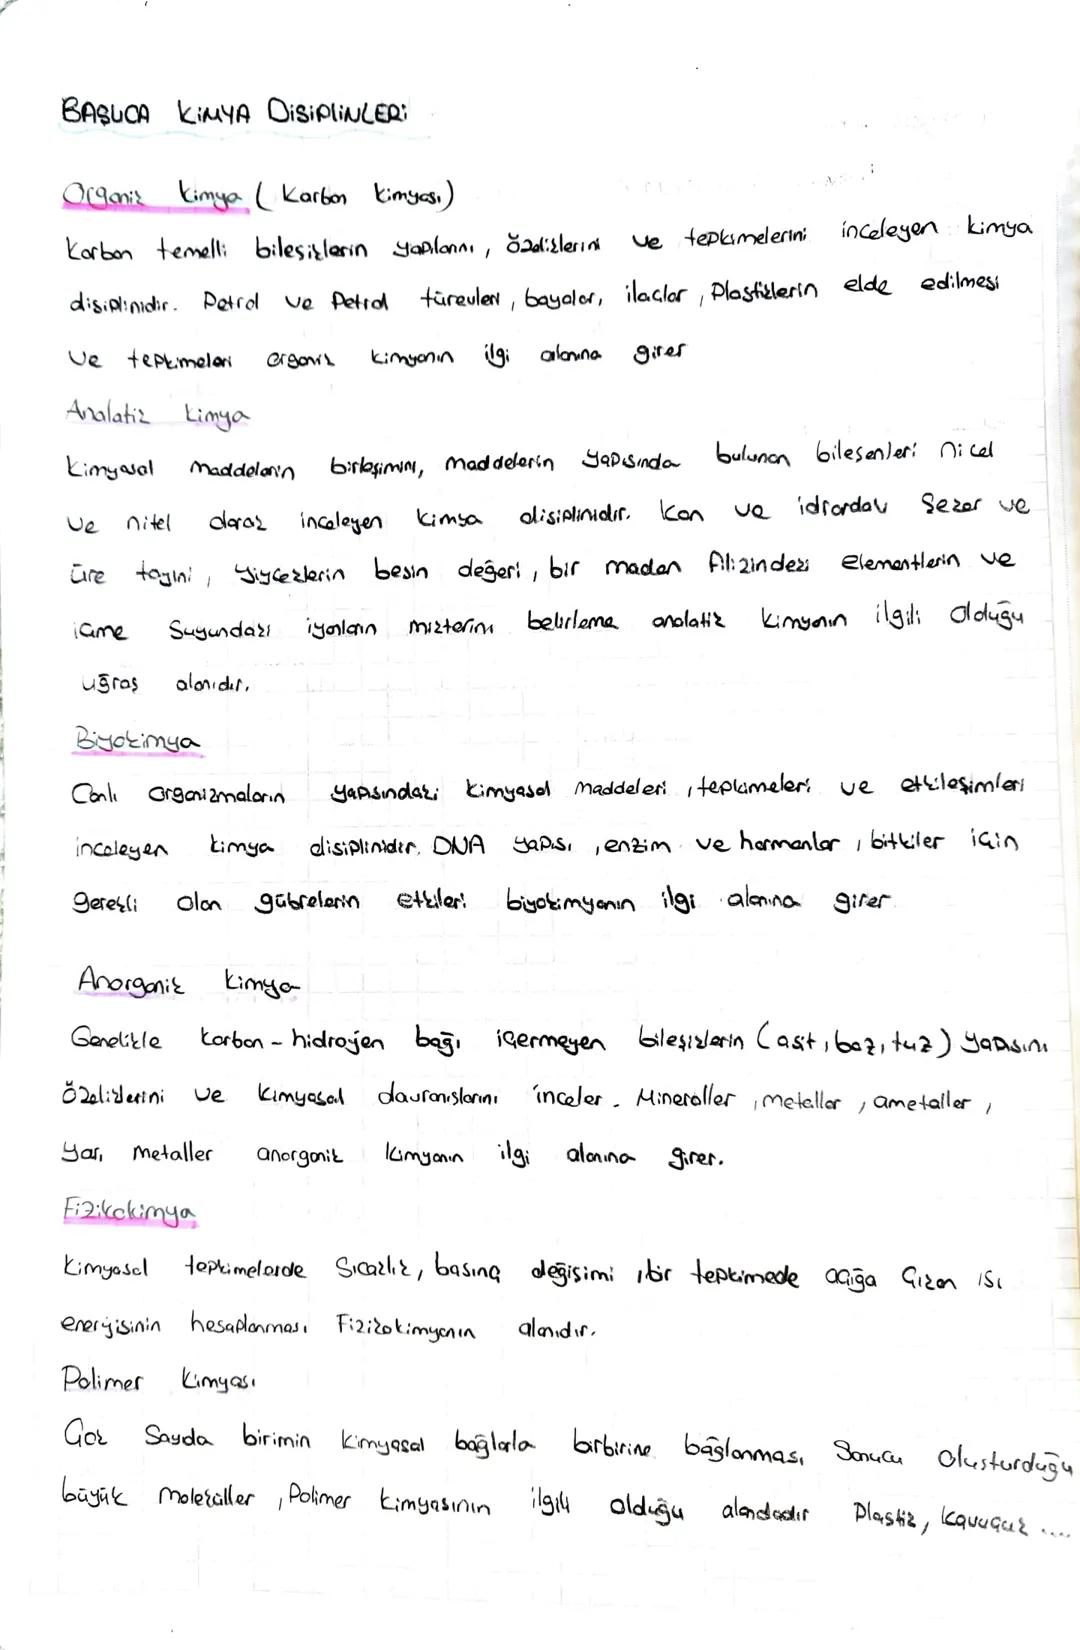 BAŞLICA KİMYA DİSİPLİNLERİ
Organik kimya ( Karbon kimyası )
Karbon temelli bileşiklerin yapılarını , özeliklerini ve tepkimelerini inceleyen kimya
disiplinidir. Petrol ve Petrol türevleri , boyalar, ilaçlar , Plastiklerin elde edilmesi
ve tepkimeleri organik kimyanın ilgi alanına girer
Analatik kimya
Kimyasal maddelerin birleşimini, maddelerin yapısında bulunan bileşenleri nicel
ve nitel olarak inceleyen kimya disiplinidir. Kan ve idrardaki şeker ve
üre tayini , yiyceklerin besin değeri , bir maden filizindeki elementlerin ve
içme suyundaki iyonların miktarını belirleme analatik kimyanın ilgili olduğu
uğraş alanıdır.
Biyokimya
Canlı organizmaların yapısındaki kimyasal maddeleri , tepkimeleri ve etkileşimleri
inceleyen kimya disiplinidir. DNA yapısı , enzim ve hormonlar , bitkiler için
gerekli olan gübrelerin etkileri biyokimyanın ilgi alanına girer
Anorganik kimya
Genelikle karbon - hidrojen bağı içermeyen bileşiklerin ( asit , baz , tuz ) yapısını
özeliklerini ve kimyasal davranışlarını inceler . Mineraller , metaller , ametaller ,
yarı metaller anorganik kimyanın ilgi alanına girer.
Fizikokimya
Kimyasal tepkimelerde sıcaklık , basınç değişimi , bir tepkimede açığa çıkan ısı
enerjisinin hesaplanması Fizikokimyanın alanıdır.
Polimer kimyası
Çok sayda birimin kimyasal bağlarla birbirine bağlanması sonucu oluşturduğu
büyük moleküller , Polimer kimyasının ilgili olduğu alandadır Plastik , kauçuk ....